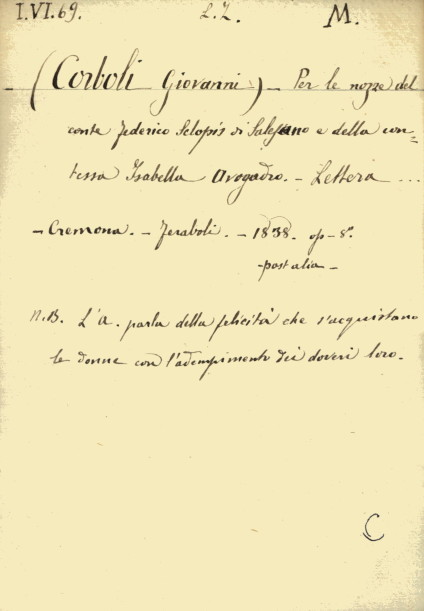 I.VI.69. L.Z. M.
– (Corboli Giovanni) – Per le nozze del
conte Federico Sclopis di Salerano e della con=
tessa Isabella Avogadro. – Lettera ...
– Cremona. – Feraboli. – 1838. op – 8°.
– post alia –
N.B. L'A. parla della felicità che s'acquistano
le donne con l'adempimento dei doveri loro.
C